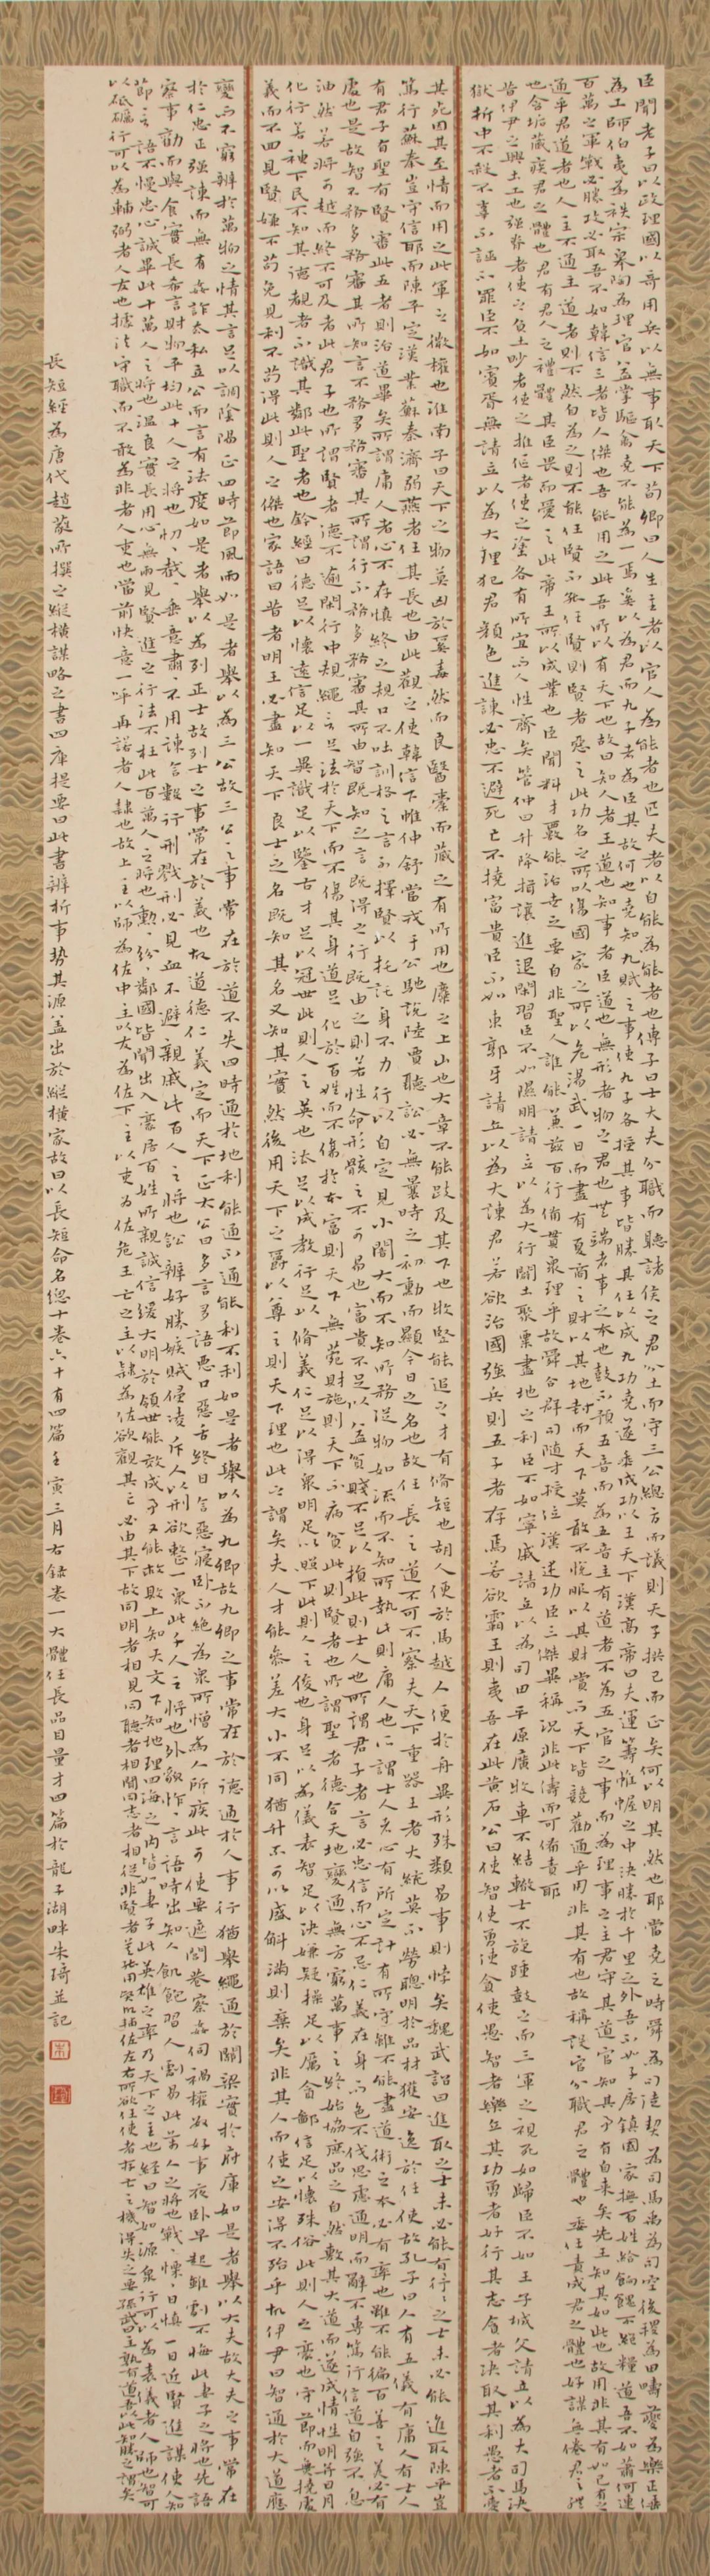 臣聞老子曰以政理國以奇用兵以無事取天下荀卿曰人生主者以官人為能者也匹夫者以自能為能者也傅子曰士大夫分職而聽諸侯之君分土而守三公總方而議則天子拱己而正矣何以明其然也耶當堯之時舜為司徒契為司馬禹為司空後稷為田疇夔為樂正倕
為工師伯夷為秩宗皋陶為理官益掌驅禽堯不能為一焉奚以為君而九子者為臣其故何也堯知九賦之事使九子各授其事皆勝其任以成九功堯遂乘成功以王天下漢高帝曰夫運籌帷幄之中決勝於千里之外吾不如子房鎮國家撫百姓給餉餽不絕糧道吾不如蕭何連
百萬之軍戰必勝攻必取吾不如韓信三者皆人傑也吾能用之此吾所以有天下也故曰知人者王道也知事者臣道也無形者物之君也無端者事之本也鼓不預五音而為五音主有道者不為五官之事而為理事之主君守其道官知其事有自來矣先王知其如此也故用非其有如己有之
通乎君道者也人主不通主道者則不然自為之則不能任賢不能任賢則賢者惡之此功名之所以傷國家之所以危湯武一日而盡有夏商之財以其地封而天下莫敢不悅服以其財賞而天下皆競勸通乎用非其有也故稱設官分職君之體也委任責成君之體也好謀無倦君之體
也含垢藏疾君之體也君有君人之體其臣畏而愛之此帝王所以成業也臣聞料才覈能治世之要自非聖人誰能兼茲百行備貫眾理乎故舜合群司隨才授位漢述功臣三傑異稱況非此儔而可備責耶
昔伊尹之興土工也強脊者使之負土眇者使之推傴者使之塗各有所宜而人性齊矣管仲曰升降揖讓進退閑習臣不如隰朋請立以為大行闢土聚粟盡地之利臣不如甯戚請立以為司田平原廣牧車不結轍士不旋踵鼓之而三軍之視死如歸臣不如王子城父請立以為大司馬決
獄折中不殺不辜不誣不罪臣不如賓胥無請立以為大理犯君顏色進諫必忠不避死亡不撓富貴臣不如東郭牙請立以為大諫君若欲治國強兵則五子者存焉若欲霸王則夷吾在此黃石公曰使智使勇使貪使愚智者樂立其功勇者好行其志貪者決取其利愚者不愛
其死因其至情而用之此軍之微權也淮南子曰天下之物莫凶於奚毒然而良醫橐而藏之有所用也麋之上山也大章不能跂及其下也牧豎能追之才有脩短也胡人便於馬越人便於舟異形殊類易事則悖矣魏武詔曰進取之士未必能有行有行之士未必能進取陳平豈
篤行蘇秦豈守信耶而陳平定漢業蘇秦濟弱燕者任其長也由此觀之使韓信下帷仲舒當戎于公馳說陸賈聽訟必無曩時之勳而顯今日之名也故任長之道不可不察夫天下重器王者大統莫不勞聰明於品材獲安逸於任使故孔子曰人有五儀有庸人有士人
有君子有聖有賢審此五者則治道畢矣所謂庸人者心不存慎終之規口不吐訓格之言不擇賢以托身不力行以自定見小闇大而不知所務從物如流而不知所執此則庸人也所謂士人者心有所定計有所守雖不能盡道術之本必有率也雖不能遍百善之美必有
處也是故智不務多務審其所知言不務多務審其所謂行不務多務審其所由智既知之言既得之行既由之則若性命形骸之不可易也富貴不足以益貧賤不足以損此則士人也所謂君子者言必忠信而心不忌仁義在身而色不伐思慮通明而辭不專篤行信道自強不息
油然若將可越而終不可及者此君子也所謂賢者德不逾閑行中規繩言足法於天下而不傷其身道足化於百姓而不傷於本富則天下無菀財施則天下不病貧此則賢者也所謂聖者德合天地變通無方窮萬事之終始協庶品之自然敷其大道而遂成情性明并日月
化行若神下民不知其德覩者不識其鄰此聖者也鈐經曰德足以懷遠信足以一異識足以鑒古才足以冠世此則人之英也法足以成教行足以脩義仁足以得眾明足以照下此則人之俊也身足以為儀表智足以決嫌疑操足以厲貪鄙信足以懷殊俗此則人之豪也守節而無撓處
義而不回見嫌不苟免見利不苟得此則人之傑也家語曰昔者明王必盡知天下良士之名既知其名又知其實然後用天下之爵以尊之則天下理也此之謂矣夫人才能參差大小不同猶升不可以盛斛滿則棄矣非其人而使之安得不殆乎故伊尹曰智通於大道應
變而不窮辨於萬物之情其言足以調陰陽正四時節風雨如是者舉以為三公故三公之事常在於道不失四時通於地利能通不通能利不利如是者舉以為九卿故九卿之事常在於德通於人事行猶舉繩通於關梁實於府庫如是者舉以為大夫故大夫之事常在
於仁忠正強諫而無有姦詐去私立公而言有法度如是者舉以為列士故列士之事常在於義也故道德仁義定而天下正太公曰多言多語惡口惡舌終日言惡寢臥不絕為眾所憎為人所疾此可使要遮閭巷察姦伺禍權數好事夜臥早起雖劇不悔此妻子之將也先語
察事勸而與食實長希言財物平均此十人之將也忉忉截截垂意肅肅不用諫言數行刑戮刑必見血不避親戚此百人之將也訟辨好勝嫉賊侵凌斥人以刑欲整一眾此千人之將也外貌怍怍言語時出知人飢飽習人劇易此萬人之將也戰戰慄慄日慎一日近賢進謀使人知
節言語不慢忠心誠畢此十萬人之將也溫良實長用心無兩見賢進之行法不枉此百萬人之將也勳勳紛紛鄰國皆聞出入豪居百姓所親誠信緩大明於領世能效成事又能救敗上知天文下知地理四海之內皆如妻子此英雄之率乃天下之主也經曰智如源泉行可以為表儀者人師也智可
以砥礪行可以為輔弼者人友也據法守職而不敢為非者人吏也當前快意一呼再諾者人隸也故上主以師為佐中主以友為佐下主以吏為佐危亡之主以隸為佐欲觀其亡必由其下故同明者相見同聽者相聞同志者相從非賢者莫能用賢故輔佐左右所欲任使者存亡之機得失之要孫武曰主孰有道吾以此知勝之謂矣
長短經為唐代趙蕤所撰之縱橫謀略之書四庫提要曰此書辨析事勢其源蓋出於縱橫家故曰以長短命名總十卷六十有四篇壬寅三月右錄卷一大體任長品目量才四篇於龍子湖畔朱琦並記